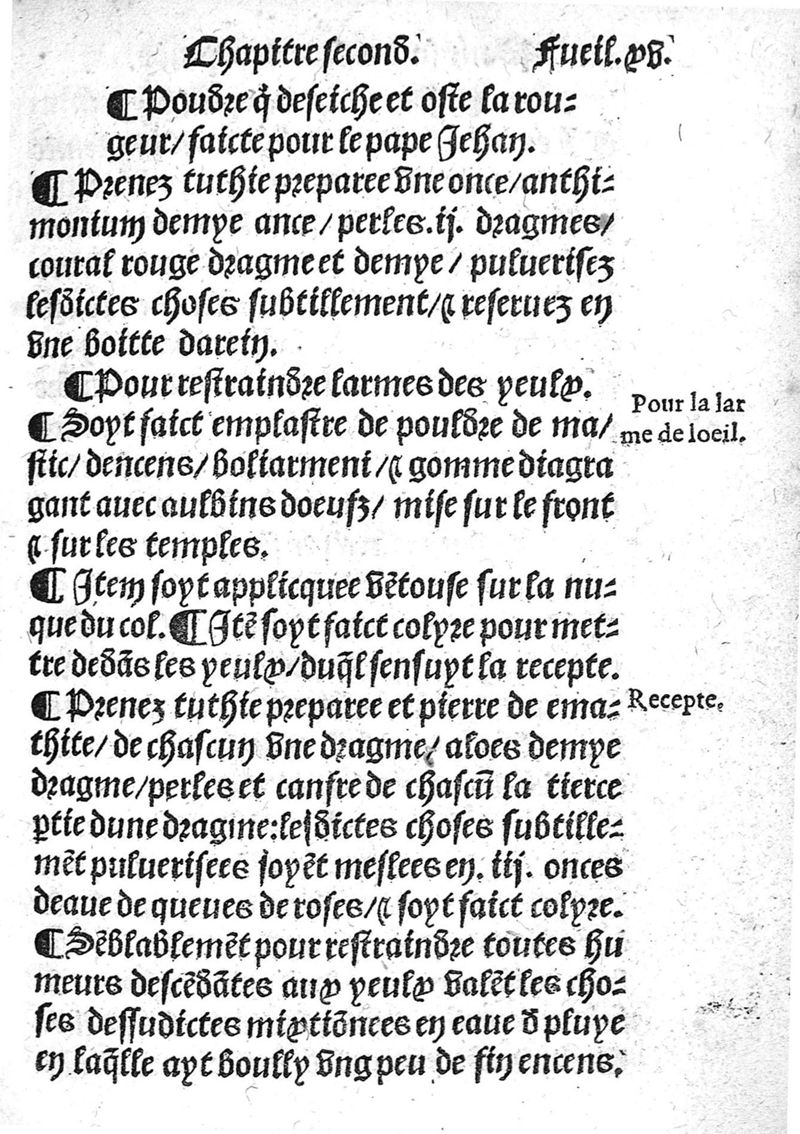 Chapitre second. Fueil.xv.
¶ Pouldre q̃ deseiche et oste la rou-
geur/ faicte pour le pape Jehan.
¶ Prenez tuthie preparee vne once/ anthi-
monium demye ance/ perles.ij. dragmes/
coural rouge dragme et demye/ puluerisez
lesdictes choses subtillement/ ⁊ reseruez en
vne boitte darein.
¶ Pour restraindre larmes des yeulx.
Pour la lar
¶ Soyt faict emplastre de pouldre de ma/
me de loeil.
stic/ dencens/ boliarmeni/ ⁊ gomme diagra
gant auec aulbins doeufz/ mise sur le front
⁊ sur les temples.
¶ Item soyt applicquee vẽtouse sur la nu-
que du col. ¶ Itẽ soyt faict colyre pour met-
tre dedãs les yeulx/ duq̃l sensuyt la recepte.
¶ Prenez tuthie preparee et pierre de ema-
Recepte.
thite/ de chascun vne dragme/ aloes demye
dragme/ perles et canfre de chascũ la tierce
ꝑtie dune dragme: lesdictes choses subtille-
mẽt puluerisees soyẽt meslees en. iij. onces
deaue de queues de roses/ ⁊ soyt faict colyre.
¶ Sẽblablemẽt pour restraindre toutes hu
meurs descẽdãtes aux yeulx valẽt les cho-
ses dessudictes mixtiõnees en eaue d̾ pluye
en laq̃lle ayt boully vng peu de fin encens.